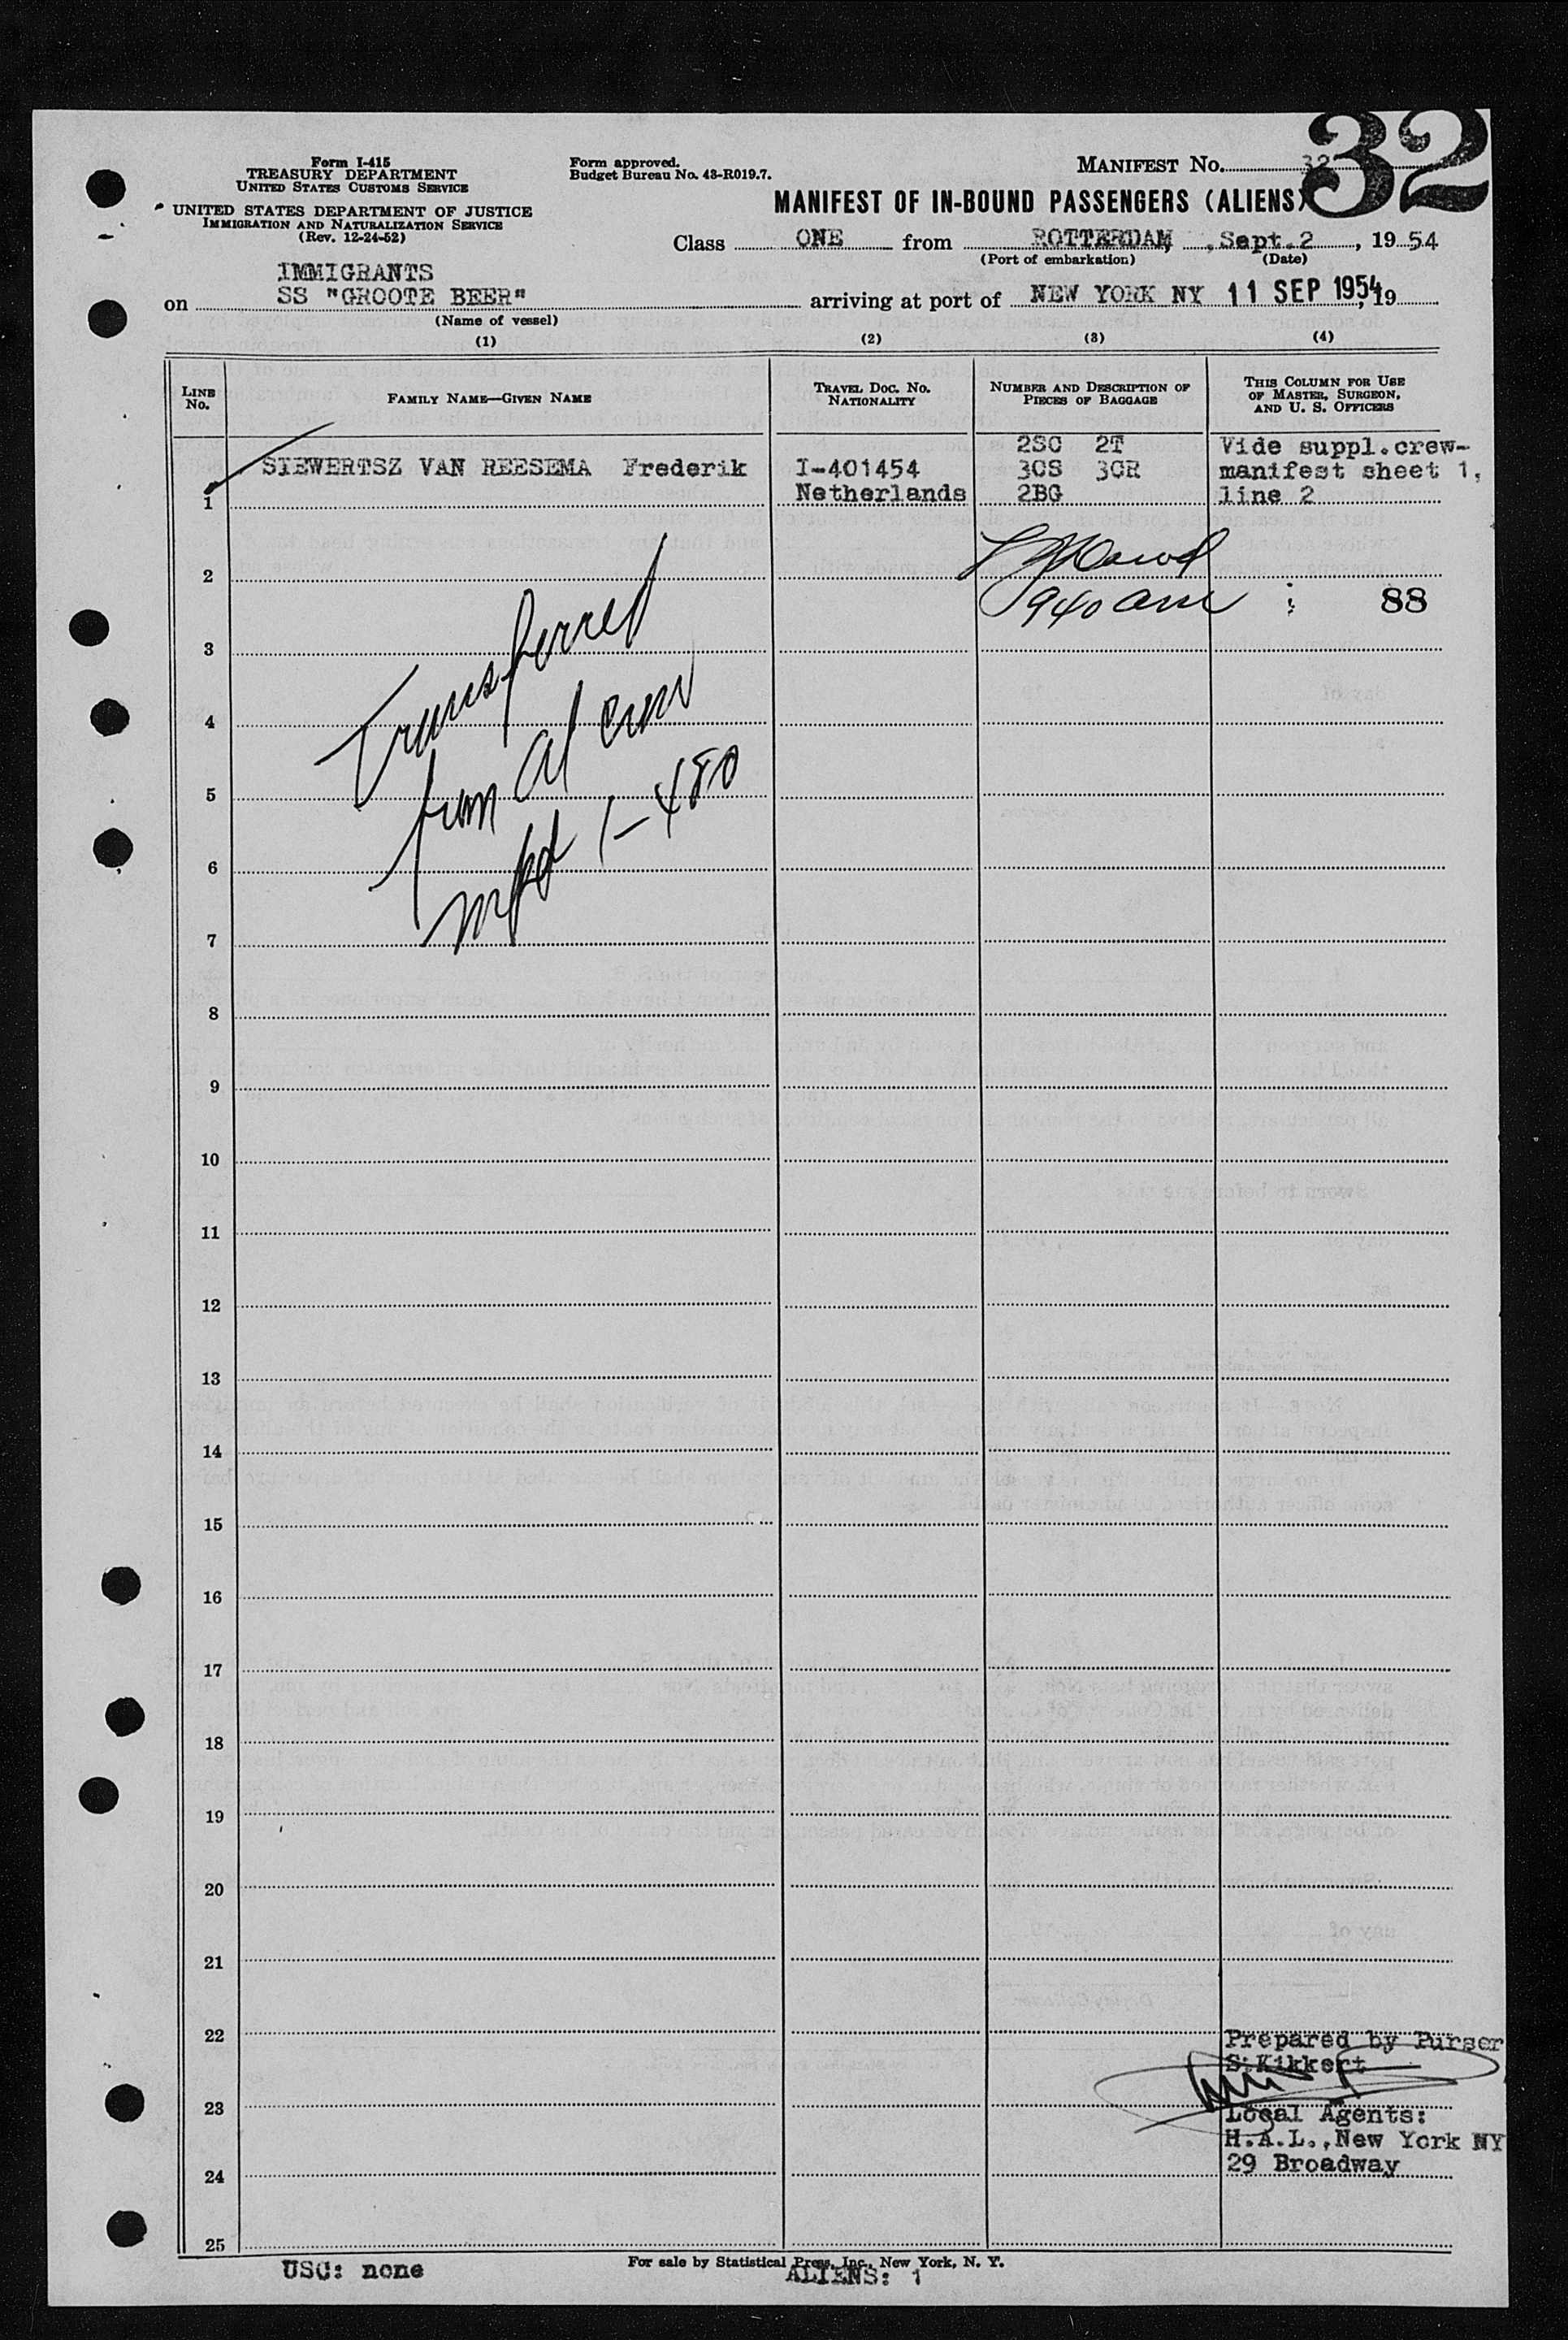 32
Form I-415
TREASURY DEPARTMENT
UNITED STATES CUSTOMS SERVICE
UNITED STATES DEPARTMENT OF JUSTICE
IMMIGRATION AND NATURALIZATION SERVICE
(Rev. 12-24-52)
Form approved.
Budget Bureau No. 43-R019.7.
MANIFEST No. 32
MANIFEST OF IN-BOUND PASSENGERS (ALIENS)
Class ONE from ROTTERDAM, Sept. 2, 1954
(Port of embarkation) (Date)
IMMIGRANTS
on SS "GROOTE BEER" arriving at port of NEW YORK NY 11 SEP 1954, 19
(Name of vessel)
(1) (2) (3) (4)
LINE No. FAMILY NAME—GIVEN NAME TRAVEL DOC. NO. NATIONALITY NUMBER AND DESCRIPTION OF PIECES OF BAGGAGE THIS COLUMN FOR USE OF MASTER, SURGEON, AND U. S. OFFICERS
2SC 2T Vide suppl.crew-
SIEWERTSZ VAN REESEMA Frederik I-401454 3CS 3CR manifest sheet 1,
1 Netherlands 2BG line 2
2
940 am : 88
3
Transferred
4
from al crew
5
mfst I-480
6
7
8
9
10
11
12
13
14
15
16
17
18
19
20
21
22
Prepared by Purser
S.Kikkert
23
Local Agents:
H.A.L.,New York NY
24 29 Broadway
25
For sale by Statistical Press, Inc., New York, N. Y.
USC: none ALIENS: 1